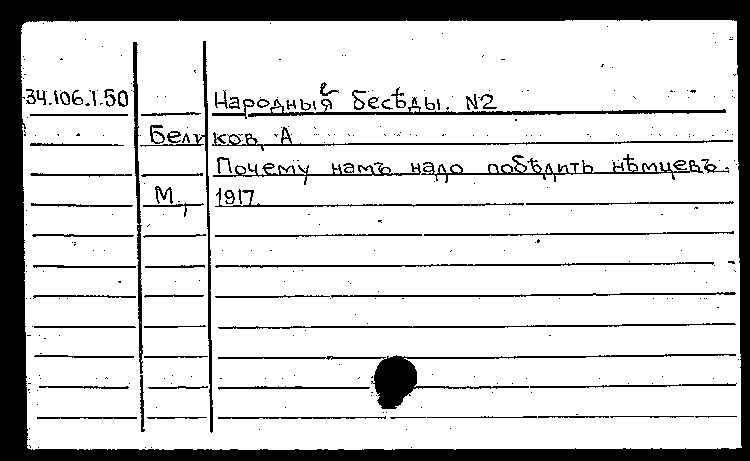 34.106.1.50 Народныя бесѣды. №2
Беликов, А
Почему намъ надо побѣдить нѣмцевъ.
М., 1917.